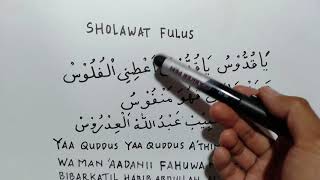 SHOLAWAT FULUS
يَا قُدُّوْسُ يَا قُدُّوْسُ أَعْطِنِي الْفُلُوْسْ
فَهُوَ مَنْفُوْسْ
عَبْدُ اللّٰهِ الْعِدْرُوْسْ
YAA QUDDUS YAA QUDDUS A'TH
WA MAN 'AADANII FAHUWA
BIBARKATIL HABIB ABDULLAH